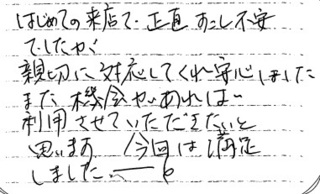 はじめての来店で正直すこし不安
でしたが
親切に対応してくれ安心しました
また機会があれば
利用させていただきたいと
思います 今回は満足
しました